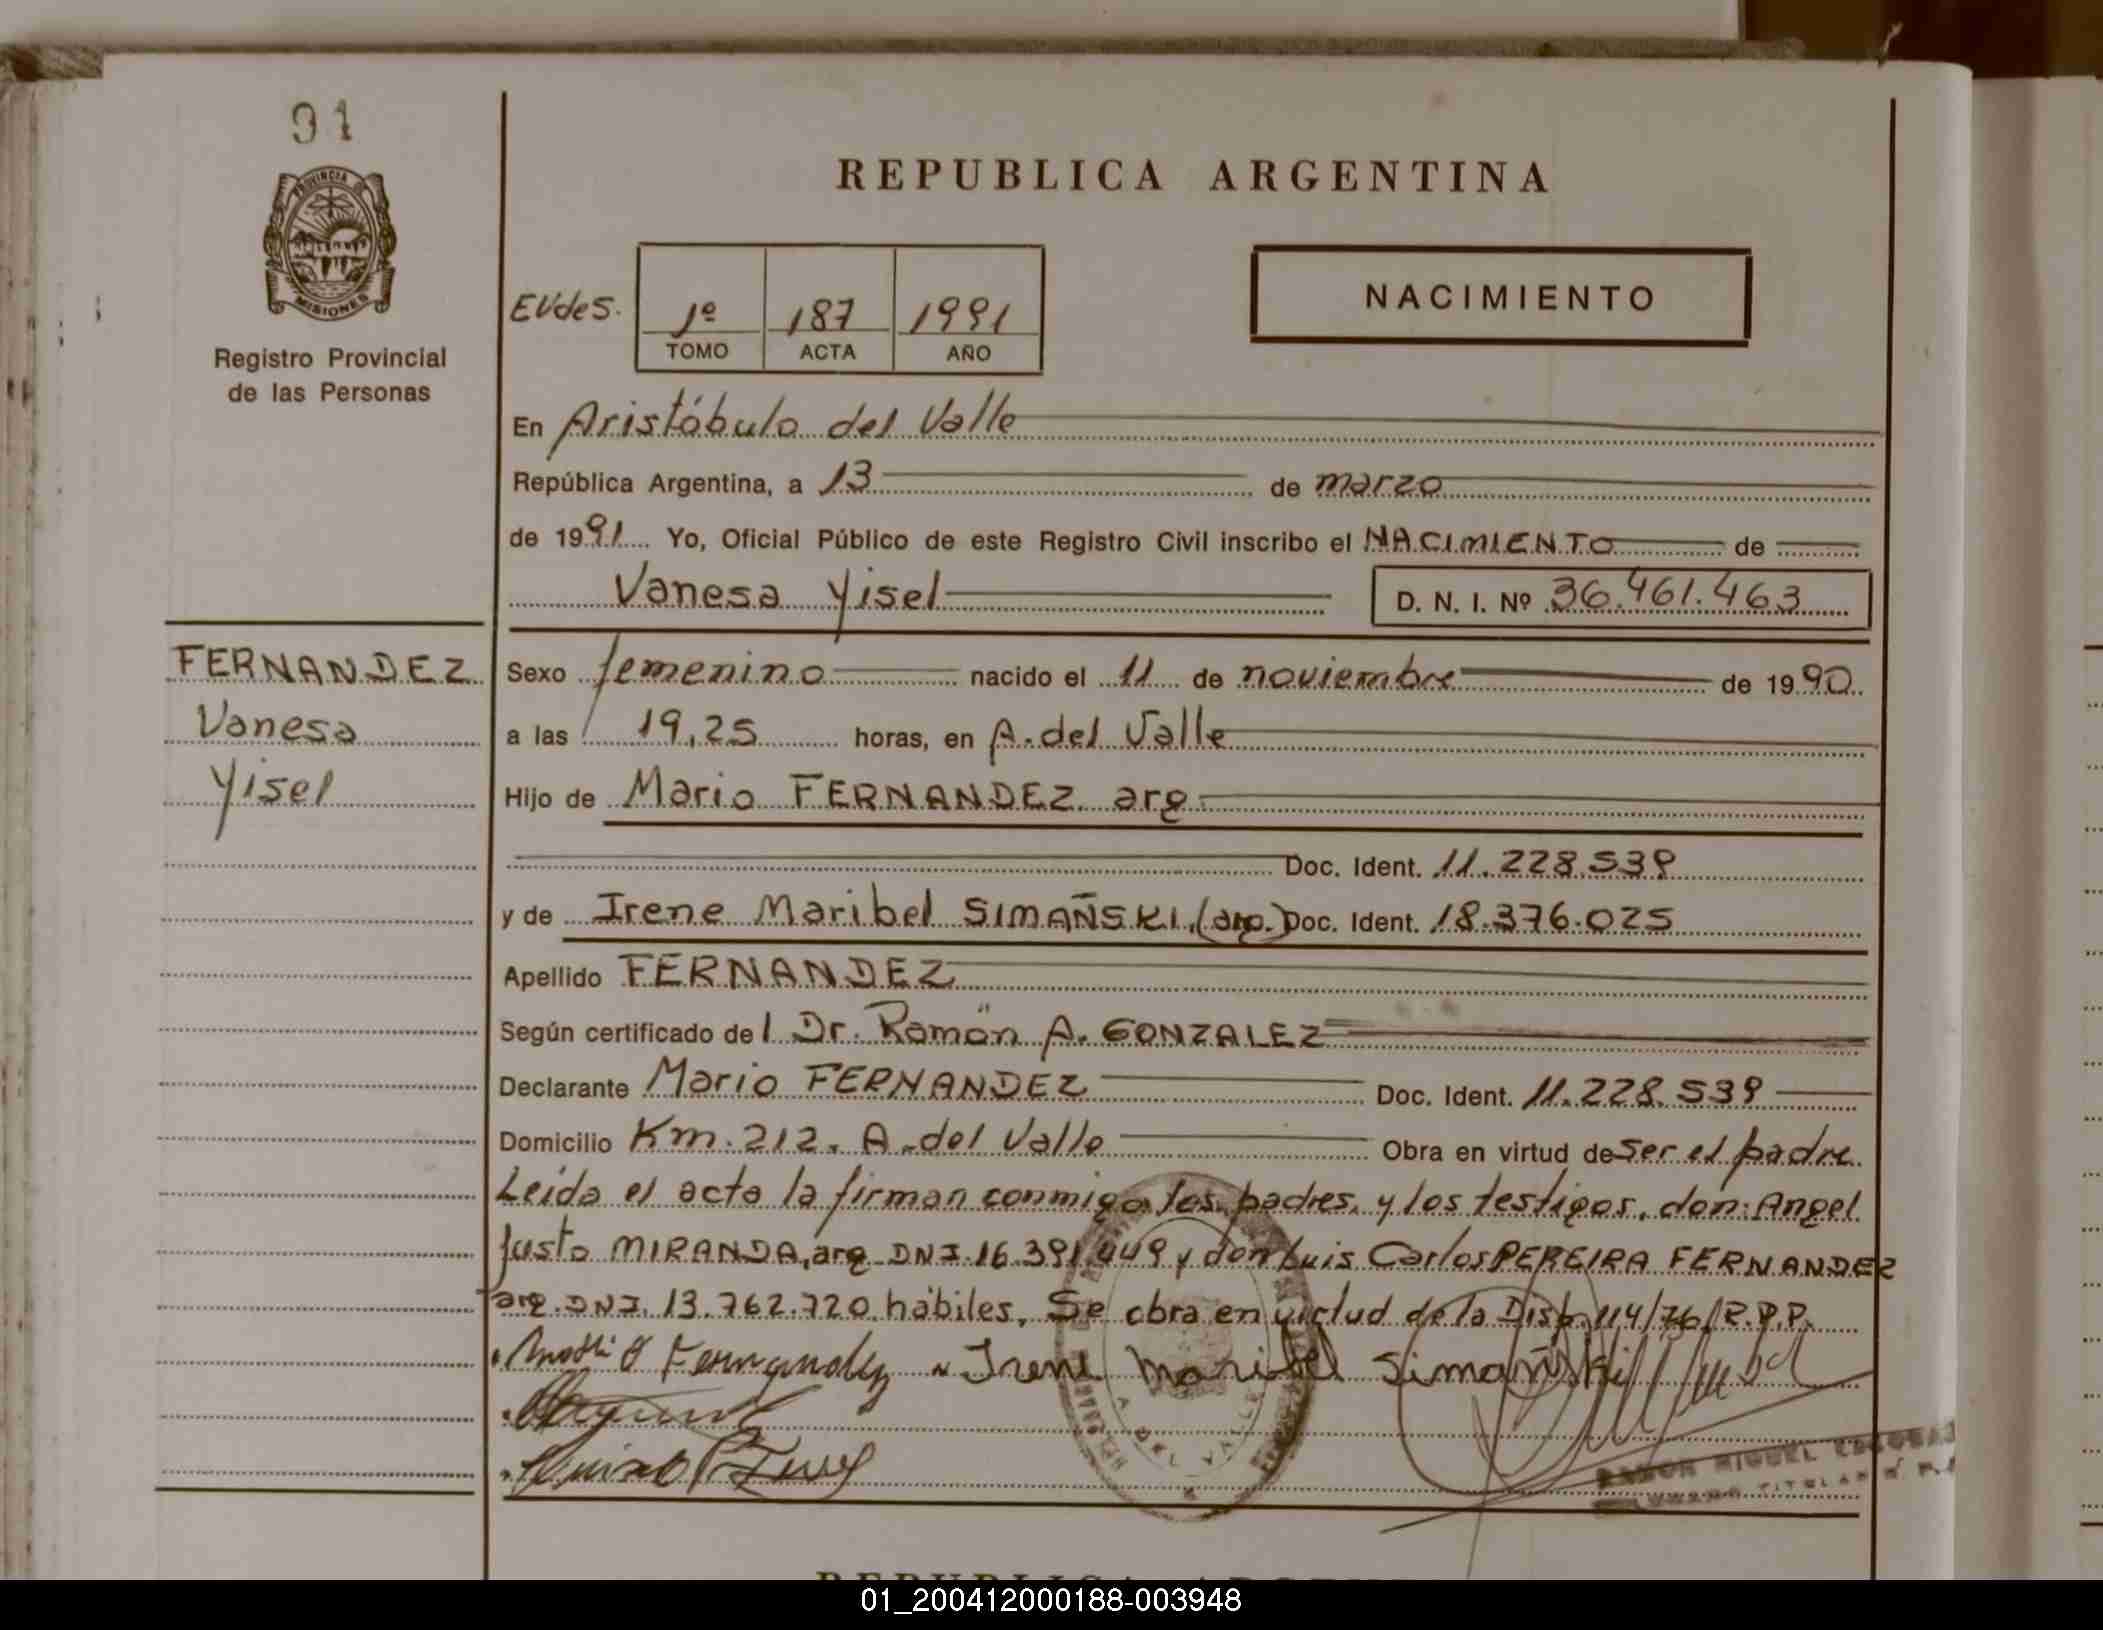 91
PROVINCIA DE
MISIONES
Registro Provincial
de las Personas
REPUBLICA ARGENTINA
EVdeS. 1º 187 1991
TOMO ACTA AÑO
NACIMIENTO
En Aristóbulo del Valle
República Argentina, a 13 de marzo
de 1991 Yo, Oficial Público de este Registro Civil inscribo el NACIMIENTO de
Vanesa Yisel D. N. I. Nº 36.461.463
FERNANDEZ
Vanesa
Yisel
Sexo femenino nacido el 11 de noviembre de 1990
a las 19,25 horas, en A. del Valle
Hijo de Mario FERNANDEZ arg
Doc. Ident. 11.228.539
y de Irene Maribel SIMAÑSKI, (arg.) Doc. Ident. 18.376.025
Apellido FERNANDEZ
Según certificado del Dr. Ramón A. GONZALEZ
Declarante Mario FERNANDEZ Doc. Ident. 11.228.539
Domicilio Km. 212. A. del Valle Obra en virtud de ser el padre
Leída el acta la firman conmigo los padres, y los testigos, don: Angel
Justo MIRANDA, arg. DNI. 16.391.449 y don Luis Carlos PEREIRA FERNANDEZ
arg. DNI. 13.762.720. hábiles. Se obra en virtud de la Disp. 114/76/R.P.P.
Fernandez Irene Maribel Simañski
A. DEL VALLE
MIGUEL
TITULAR
REPUBLICA ARGENTINA
01_200412000188-003948